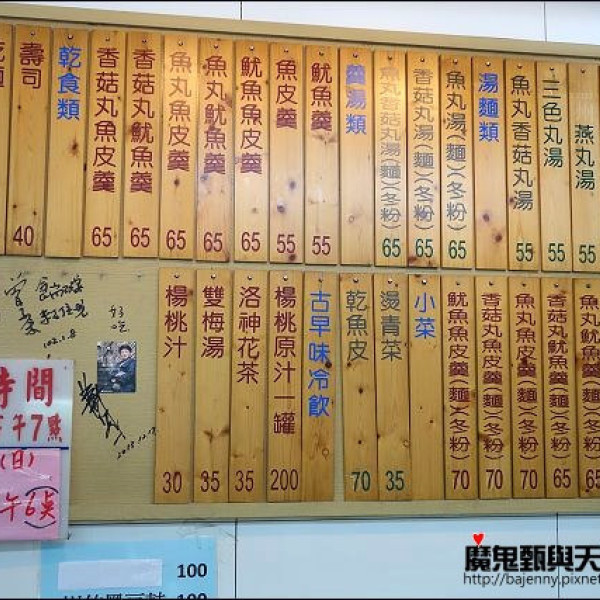 燕丸湯 55
三色丸湯 55
魚丸香菇丸湯 55
湯麵類
魚丸湯(麵)(冬粉) 65
香菇丸湯(麵)(冬粉) 65
魚丸香菇丸湯(麵)(冬粉) 65
羹湯類
魷魚羹 55
魚皮羹 55
魷魚魚皮羹 65
魚丸魷魚羹 65
魚丸魚皮羹 65
香菇丸魷魚羹 65
香菇丸魚皮羹 65
乾食類
壽司 40
魚丸魷魚羹(麵)(冬粉) 65
香菇丸魷魚羹(麵)(冬粉) 65
魚丸魚皮羹(麵)(冬粉) 70
香菇丸魚皮羹(麵)(冬粉) 70
魷魚魚皮羹(麵)(冬粉) 70
小菜
燙青菜 35
乾魚皮 70
古早味冷飲
楊桃原汁一罐 200
洛神花茶 35
雙梅湯 35
楊桃汁 30
好吃
102.1.8
時間
午7點
(日)
午6点
100
100
魔鬼甄與天
http://bajenny.pixne